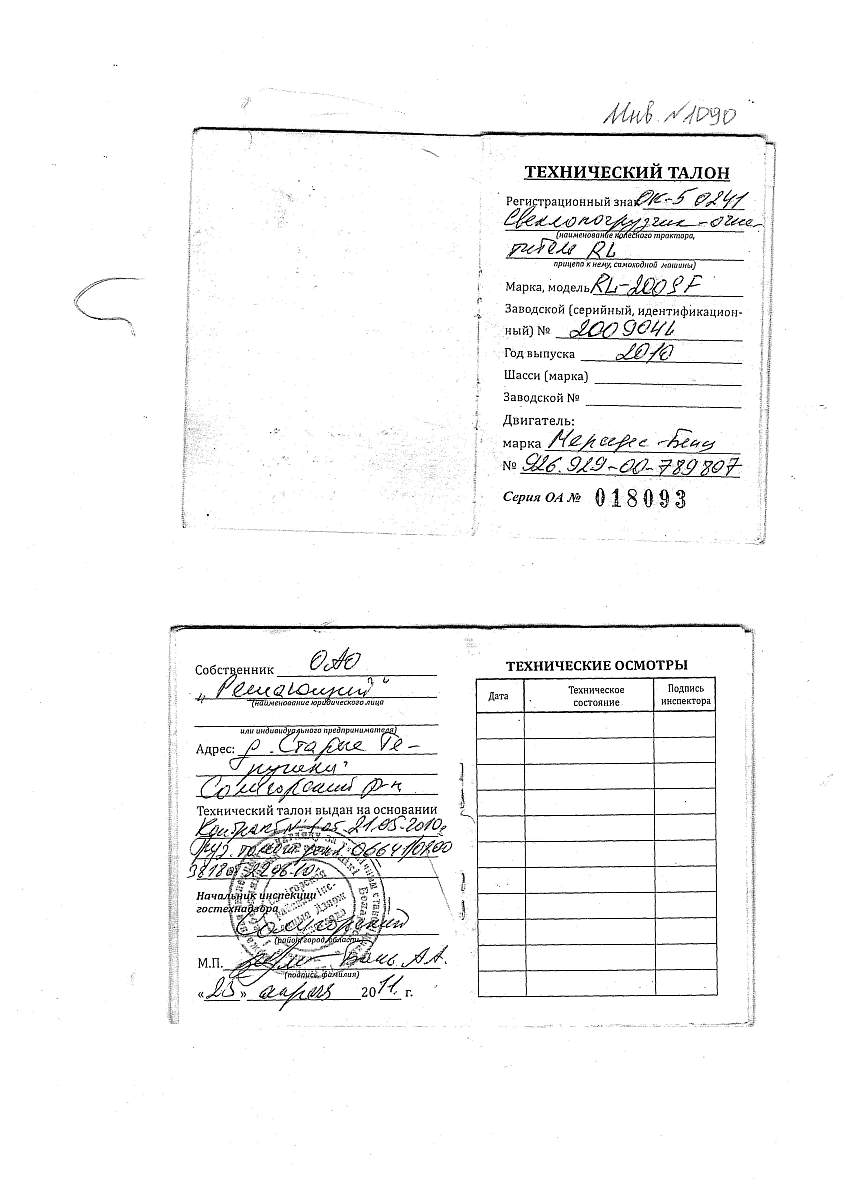 Инв. №1090
ТЕХНИЧЕСКИЙ ТАЛОН
Регистрационный знак ОК-5 0241
Свеклопогрузчик-очис-
(наименование колесного трактора,
титель RL
прицепа к нему, самоходной машины)
Марка, модель RL-200SF
Заводской (серийный, идентификацион-
ный) №
Год выпуска 2010
Шасси (марка)
Заводской №
Двигатель:
марка Мерседес-Бенц
№ 926.929-00-789807
Серия ОА № 018093
Собственник ОАО
(наименование юридического лица
или индивидуального предпринимателя)
Адрес: Старые Те-
рушки
Солигорский р-н
Технический талон выдан на основании
Контракт №1 от 21.05.2010г
Начальник инспекции
гостехнадзора
Солигорский
(район, город, область)
М.П. А.А.
(подпись, фамилия)
«23» апреля 2011 г.
ТЕХНИЧЕСКИЕ ОСМОТРЫ
Дата Техническое состояние Подпись инспектора